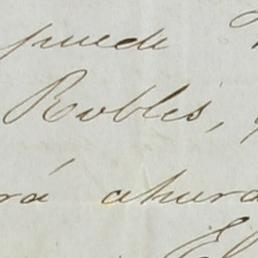 puede
Robles,
rá ahora
El